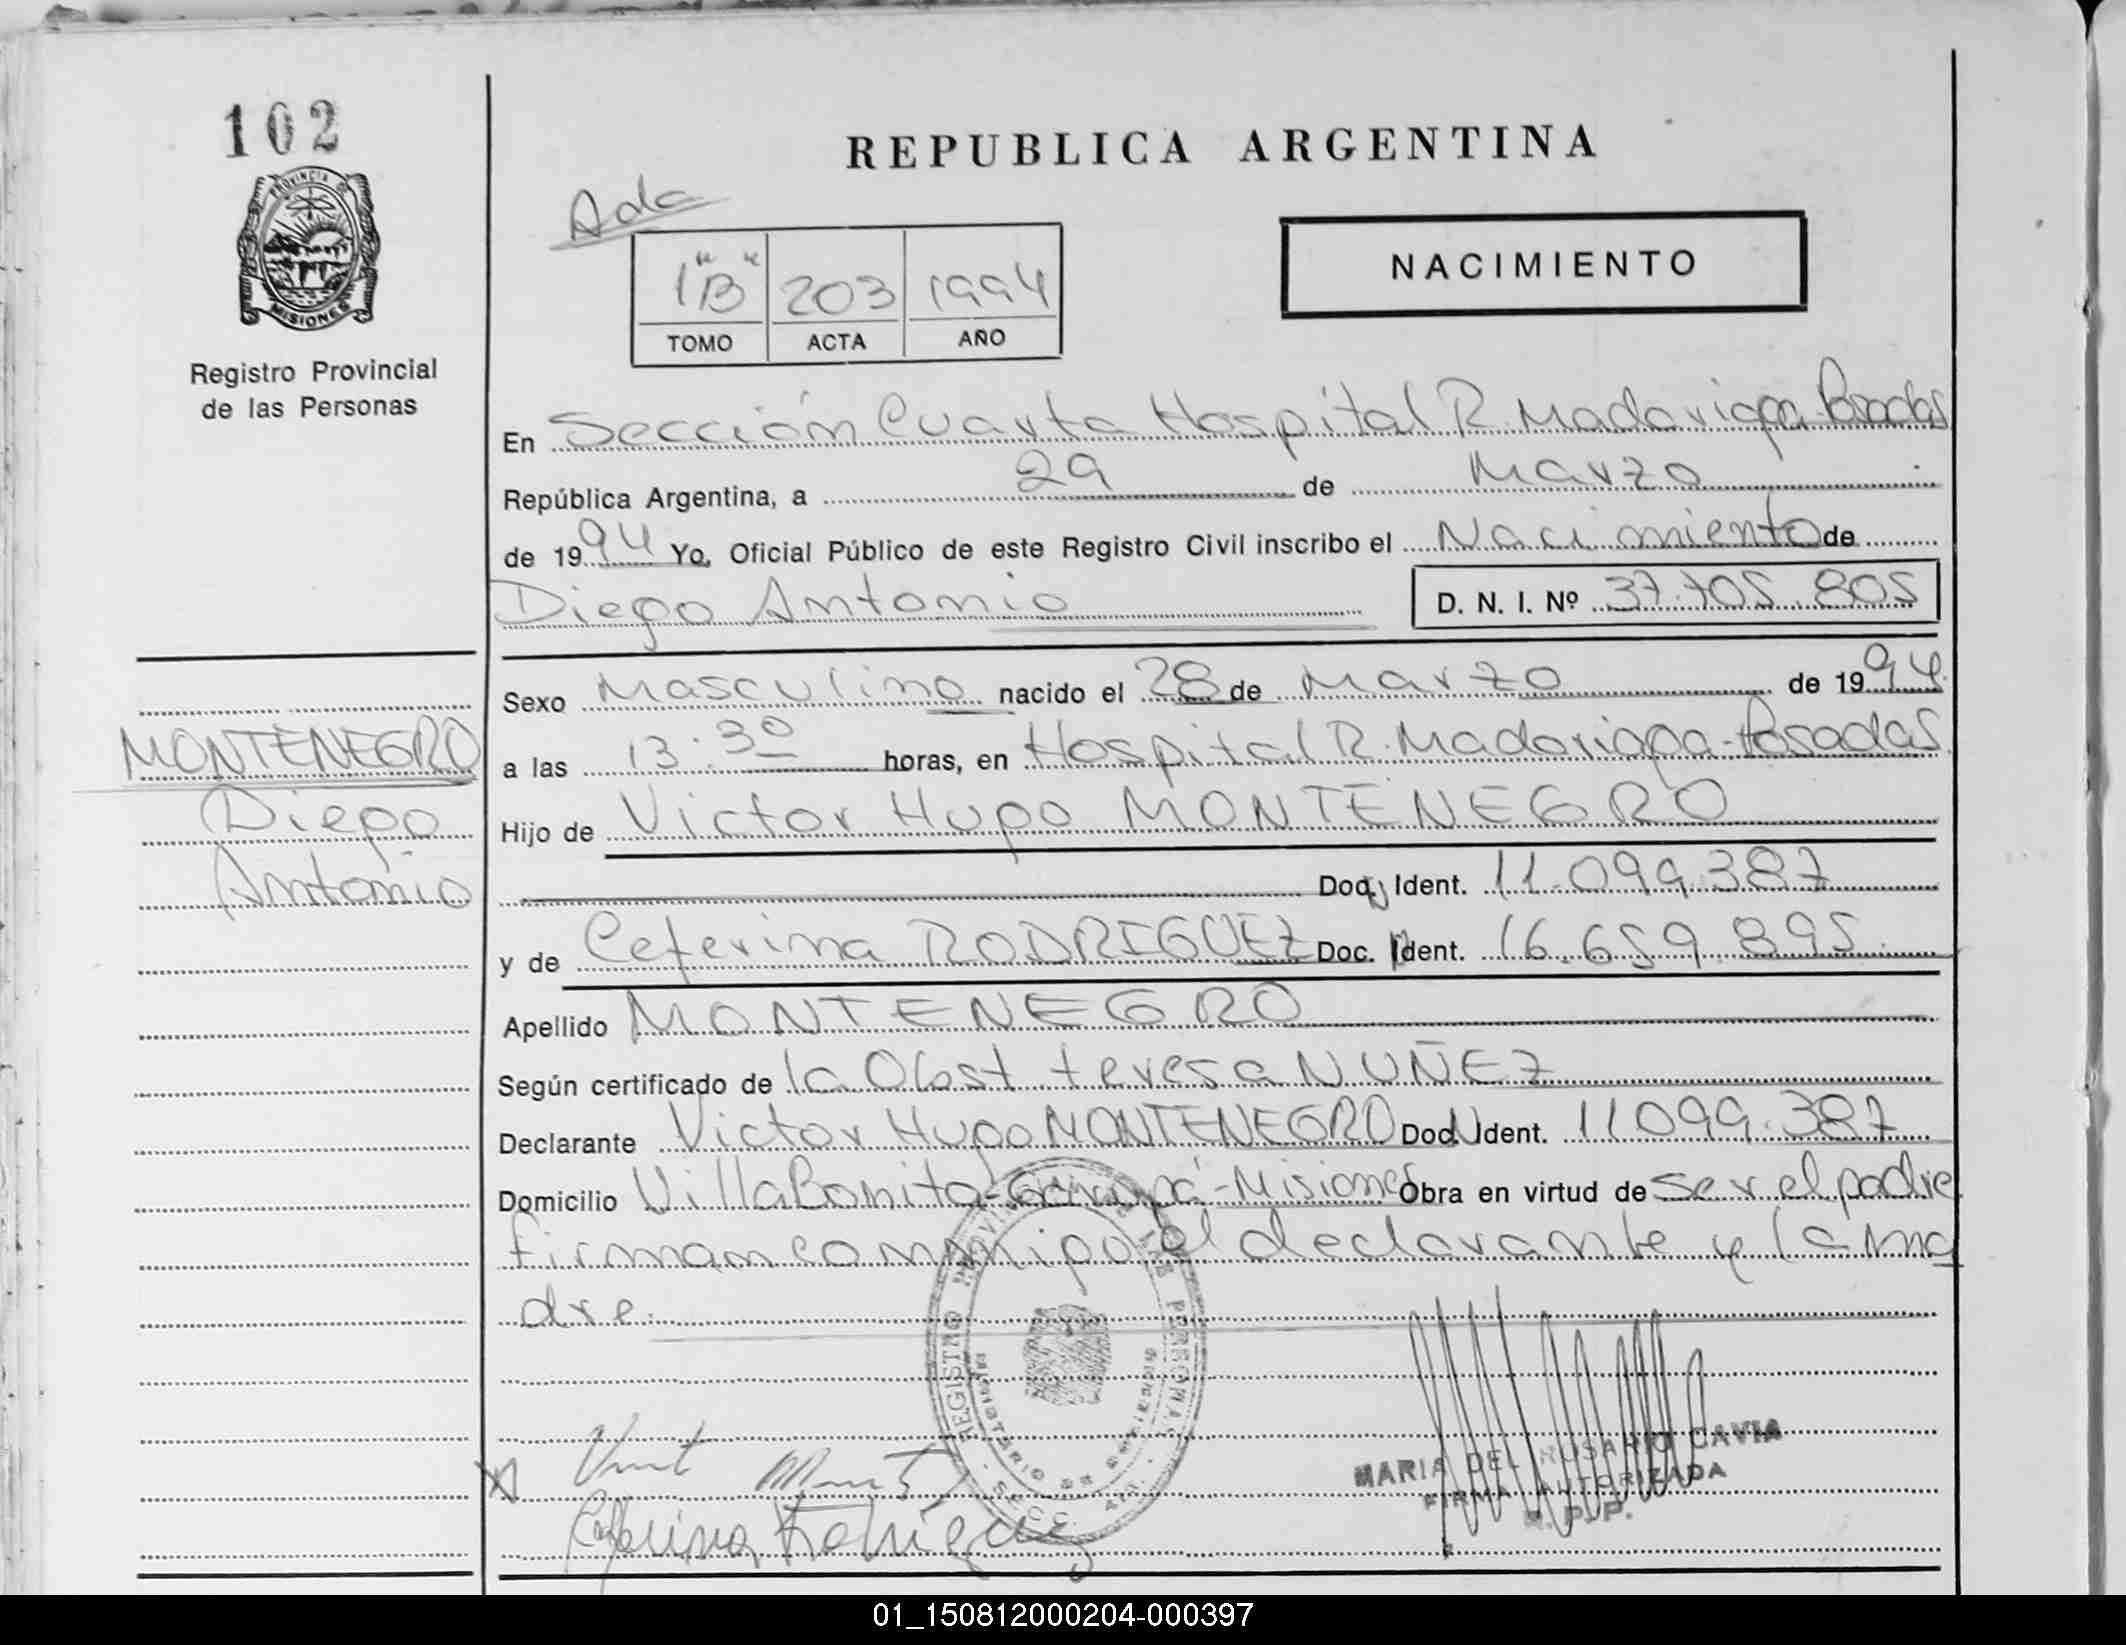 102
PROVINCIA DE
MISIONES
Registro Provincial
de las Personas
REPUBLICA ARGENTINA
Ada
NACIMIENTO
1"B" 203 1994
TOMO ACTA AÑO
En Sección Cuarta Hospital R. Madariaga-Posadas
República Argentina, a 29 de Marzo
de 1994 Yo, Oficial Público de este Registro Civil inscribo el Nacimiento de
Diego Antonio D. N. I. Nº 37.705.805
Sexo Masculino nacido el 28 de Marzo de 1994.
a las 13:30 horas, en Hospital R. Madariaga-Posadas.
MONTENEGRO
Diego
Antonio
Hijo de Victor Hugo MONTENEGRO
Doc. Ident. 11.099.387
y de Ceferina RODRIGUEZ Doc. Ident. 16.659.895.
Apellido MONTENEGRO
Según certificado de la Obst teresa NUÑEZ
Declarante Victor Hugo MONTENEGRO Doc. Ident. 11099.387
Domicilio Villa Bonita-Garupá-Misiones Obra en virtud de ser el padre
firman conmigo el declarante y la ma
dre.
REGISTRO PROVINCIAL DE LAS PERSONAS
MINISTERIO DE GOBIERNO
SECC. 4ta.
MARIA DEL ROSARIO CAVIA
FIRMA AUTORIZADA
R. P. P.
Ceferina Rodriguez
01_150812000204-000397